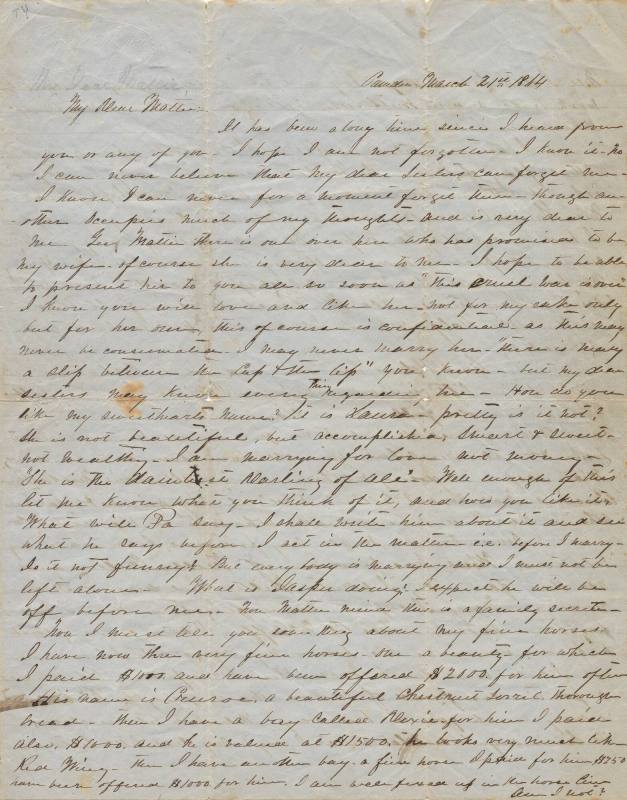 Camden March 21st 1864
My Dear Mattie
It has been along time since I heard from
you or any of you. I hope I am not forgotten. I know it. No
I can never believe that my dear Sisters can forget me
I know I can never for a moment forget them though an-
other occupies much of my thoughts and is very dear to
me Yes, Mattie there is one over here who has promised to be
my wife. of course she is very dear to me. I hope to be able
to present her to you all so soon as "this cruel War is over"
I know you will love and like her not for my sake only
but for her own, this of course is confidential. as this may
never be consummated. I may never marry her. "there is many
a slip between the Cup & the lip" you know. but my dear
sisters may know every thing regarding me. How do you
like my sweethearts name? it is Laura pretty is it not?
She is not beautiful, but accomplished, smart & sweet.
not wealthy. I am marrying for love not money.
"She is the daintiest darling of all". Well enough of this
let me know what you think of it, and how you like it.
What will Pa say. I shall write him about it and see
what he says before I act in the matter i.e. before I marry.
Is it not funny? But every body is marrying and I must not be
left alone. What is Jasper doing? I expect he will be
off before me. Now Mattie mind this is a family secret.
Now I must tell you something about my fine horses
I have now three very fine horses. one a beauty for which
I paid $1000. and have been offered $2000. for him often
His name is a beautiful Chestnut Sorril thorough
bread. Then I have a bay called Dixie for him I paid
also, $1000. and he is valued at $1500. he looks very much like
Red Wing. then I have another bay. a fine horse I paid for him $750
have been offered $1000 for him. I am well fixed up in the horse line
Am I not?